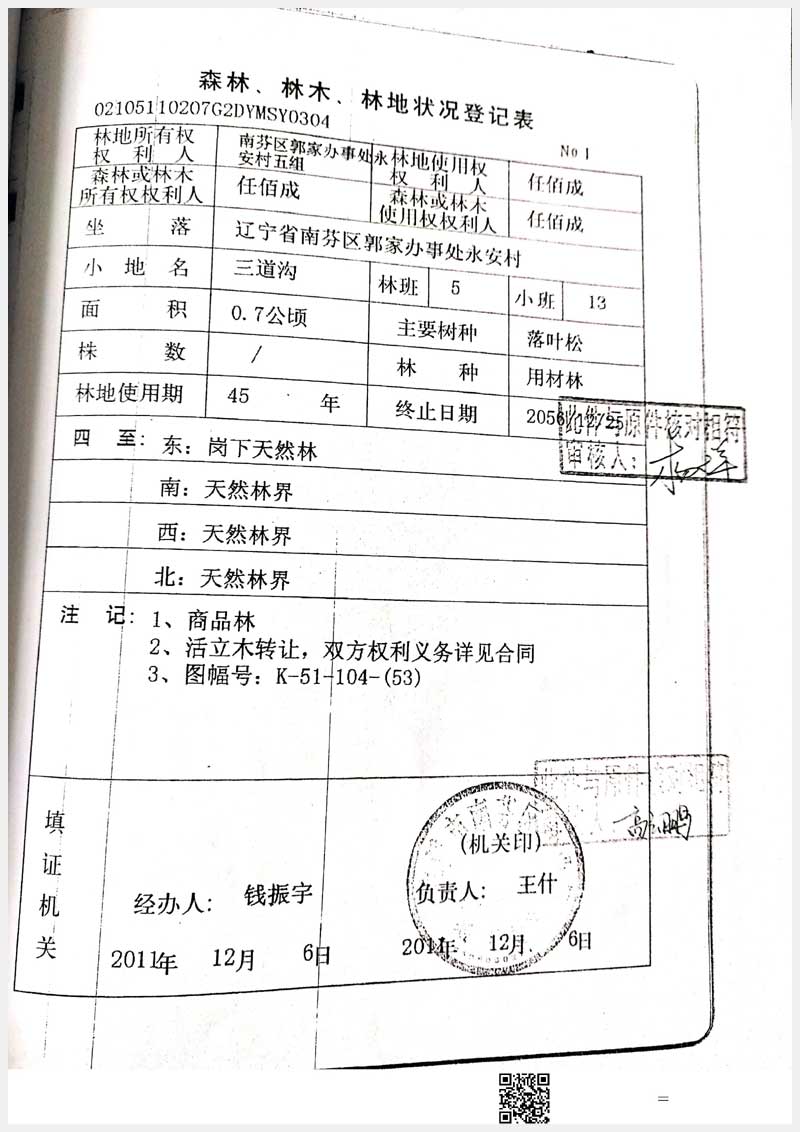 森林、林木、林地状况登记表
02105110207G2DYMSY0304
No 1
林地所有权权利人 南芬区郭家办事处永安村五组 林地使用权权利人 任佰成
森林或林木所有权权利人 任佰成 森林或林木使用权权利人 任佰成
坐落 辽宁省南芬区郭家办事处永安村
小地名 三道沟 林班 5 小班 13
面积 0.7公顷 主要树种 落叶松
株数 / 林种 用材林
林地使用期 45 年 终止日期 2056/12/25
此件与原件核对相符
审核人:
四至: 东: 岗下天然林
南: 天然林界
西: 天然林界
北: 天然林界
注记: 1、商品林
2、活立木转让, 双方权利义务详见合同
3、图幅号: K-51-104-(53)
填证机关
(机关印)
经办人: 钱振宇 负责人: 王什
2011年 12月 6日 2011年 12月 6日